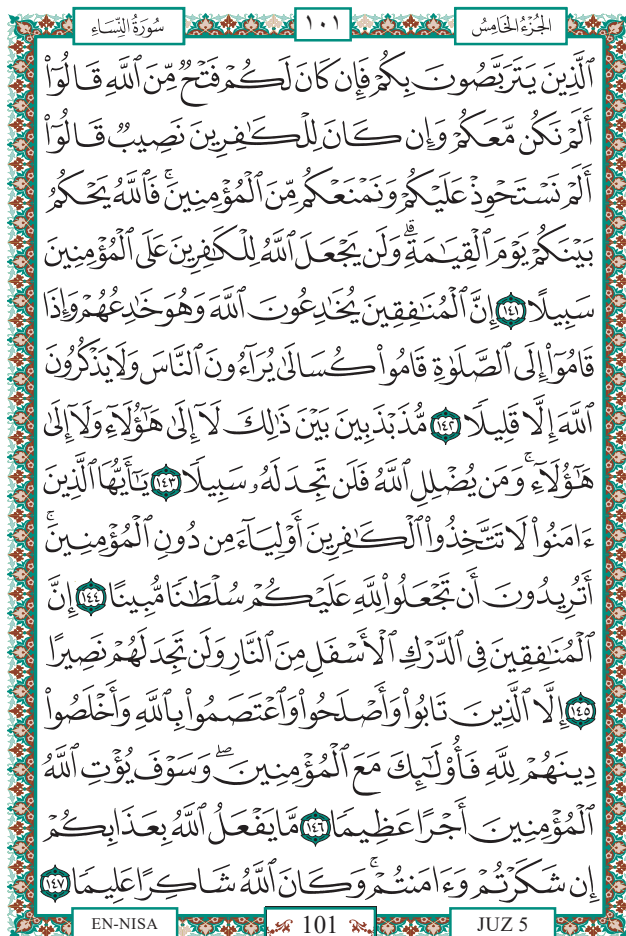 سُورَةُ النِّسَاءِ ١٠١ الجُزْءُ الخَامِسُ
ٱلَّذِينَ يَتَرَبَّصُونَ بِكُمْ فَإِن كَانَ لَكُمْ فَتْحٌ مِّنَ ٱللَّهِ قَالُوٓا۟
أَلَمْ نَكُن مَّعَكُمْ وَإِن كَانَ لِلْكَـٰفِرِينَ نَصِيبٌ قَالُوٓا۟
أَلَمْ نَسْتَحْوِذْ عَلَيْكُمْ وَنَمْنَعْكُم مِّنَ ٱلْمُؤْمِنِينَ ۚ فَٱللَّهُ يَحْكُمُ
بَيْنَكُمْ يَوْمَ ٱلْقِيَـٰمَةِ ۗ وَلَن يَجْعَلَ ٱللَّهُ لِلْكَـٰفِرِينَ عَلَى ٱلْمُؤْمِنِينَ
سَبِيلًا ١٤١ إِنَّ ٱلْمُنَـٰفِقِينَ يُخَـٰدِعُونَ ٱللَّهَ وَهُوَ خَـٰدِعُهُمْ وَإِذَا
قَامُوٓا۟ إِلَى ٱلصَّلَوٰةِ قَامُوا۟ كُسَالَىٰ يُرَآءُونَ ٱلنَّاسَ وَلَا يَذْكُرُونَ
ٱللَّهَ إِلَّا قَلِيلًا ١٤٢ مُّذَبْذَبِينَ بَيْنَ ذَٰلِكَ لَآ إِلَىٰ هَـٰٓؤُلَآءِ وَلَآ إِلَىٰ
هَـٰٓؤُلَآءِ ۚ وَمَن يُضْلِلِ ٱللَّهُ فَلَن تَجِدَ لَهُۥ سَبِيلًا ١٤٣ يَـٰٓأَيُّهَا ٱلَّذِينَ
ءَامَنُوا۟ لَا تَتَّخِذُوا۟ ٱلْكَـٰفِرِينَ أَوْلِيَآءَ مِن دُونِ ٱلْمُؤْمِنِينَ ۚ
أَتُرِيدُونَ أَن تَجْعَلُوا۟ لِلَّهِ عَلَيْكُمْ سُلْطَـٰنًا مُّبِينًا ١٤٤ إِنَّ
ٱلْمُنَـٰفِقِينَ فِى ٱلدَّرْكِ ٱلْأَسْفَلِ مِنَ ٱلنَّارِ وَلَن تَجِدَ لَهُمْ نَصِيرًا
١٤٥ إِلَّا ٱلَّذِينَ تَابُوا۟ وَأَصْلَحُوا۟ وَٱعْتَصَمُوا۟ بِٱللَّهِ وَأَخْلَصُوا۟
دِينَهُمْ لِلَّهِ فَأُو۟لَـٰٓئِكَ مَعَ ٱلْمُؤْمِنِينَ ۖ وَسَوْفَ يُؤْتِ ٱللَّهُ
ٱلْمُؤْمِنِينَ أَجْرًا عَظِيمًا ١٤٦ مَّا يَفْعَلُ ٱللَّهُ بِعَذَابِكُمْ
إِن شَكَرْتُمْ وَءَامَنتُمْ ۚ وَكَانَ ٱللَّهُ شَاكِرًا عَلِيمًا ١٤٧
EN-NISA 101 JUZ 5